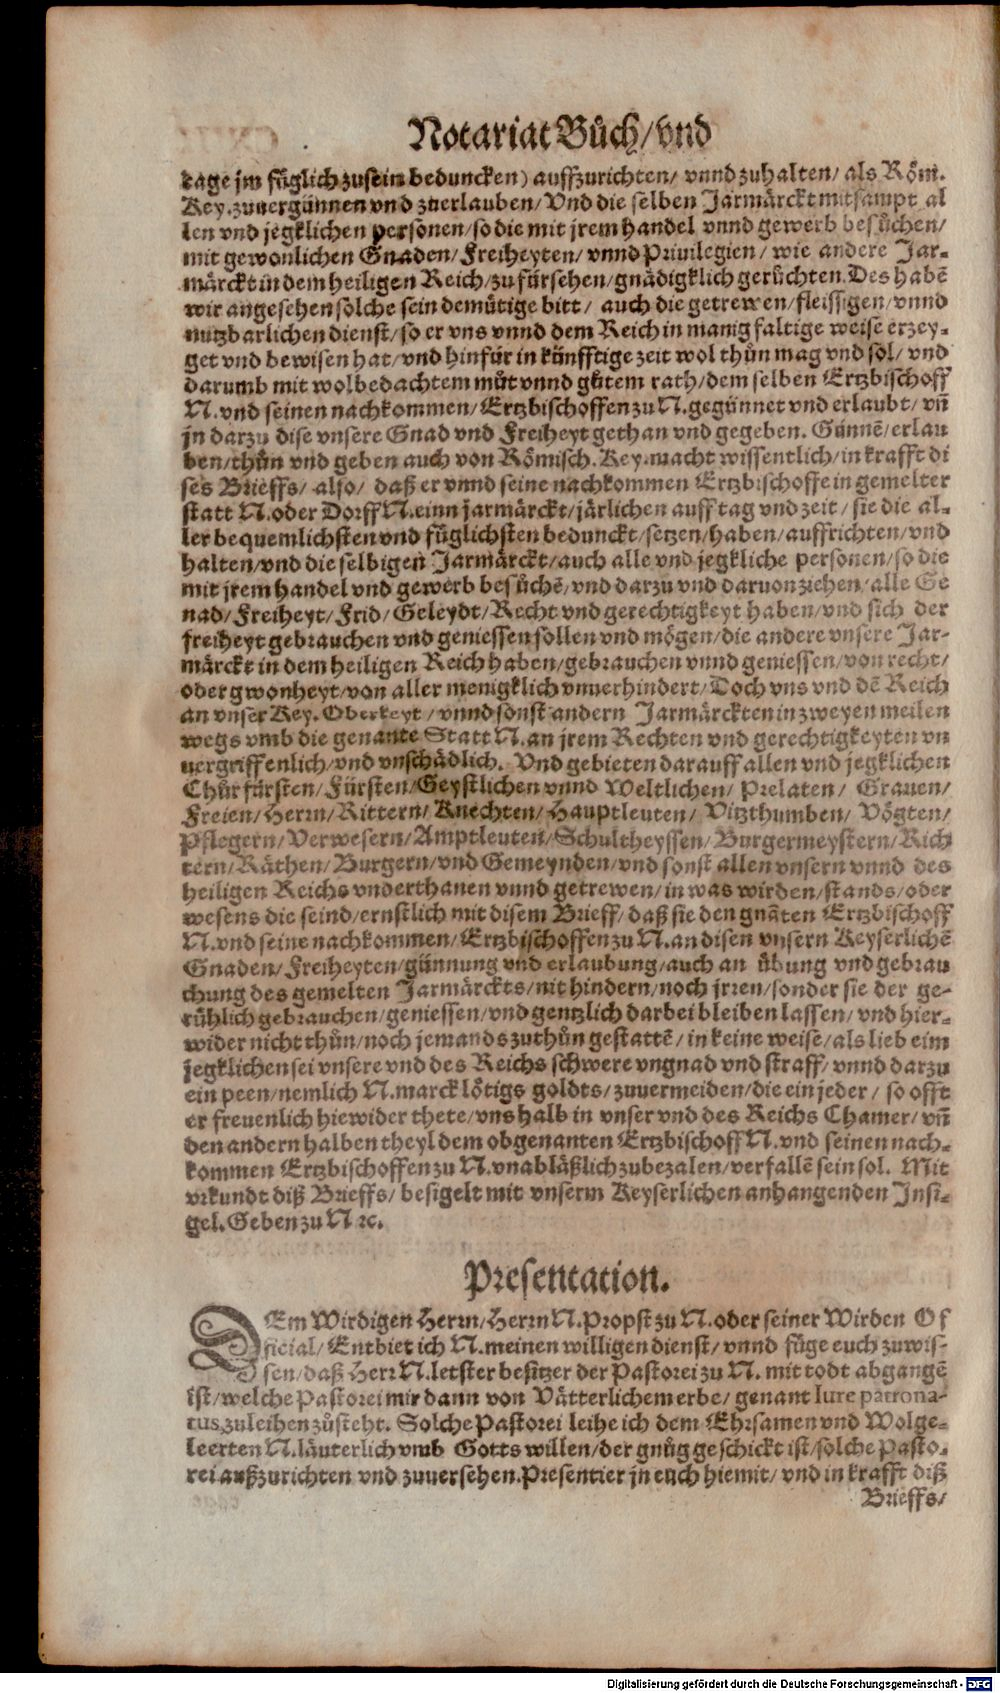 Notariat Bůch/vnd
tage jm fůglich zusein beduncken) auffzurichten/ vnnd zuhalten/ als Röm.
Key. zuuergünnen vnd zuerlauben/ Vnd die selben Jarmärckt mitsampt al
len vnd jegklichen personen/ so die mit jrem handel vnnd gewerb besůchen/
mit gewonlichen Gnaden/ Freiheyten/ vnnd Priuilegien/ wie andere Jar-
märckt in dem heiligen Reich/ zu fürsehen/ gnädigklich gerůchten. Des habē
wir angesehen solche sein demütige bitt/ auch die getrewen/ fleissigen/ vnnd
nutzbarlichen dienst/ so er vns vnnd dem Reich in manigfaltige weise erzey-
get vnd bewisen hat/ vnd hinfür in künfftige zeit wol thůn mag vnd sol/ vnd
darumb mit wolbedachtem můt vnnd gůtem rath/ dem selben Ertzbischoff
N. vnd seinen nachkommen/ Ertzbischoffen zu N. gegünnet vnd erlaubt/ vñ
jn darzu dise vnsere Gnad vnd Freiheyt gethan vnd gegeben. Günnē/ erlau
ben/ thůn vnd geben auch von Römisch. Key. macht wissentlich/ in krafft di
ses Brieffs/ also/ daß er vnnd seine nachkommen Ertzbischoffe in gemelter
statt N. oder Dorff N. einn jarmärckt/ järlichen auff tag vnd zeit/ sie die al-
ler bequemlichsten vnd füglichsten bedunckt/ setzen/ haben/ auffrichten/ vnd
halten/ vnd die selbigen Jarmärckt/ auch alle vnd jegkliche personen/ so die
mit jrem handel vnd gewerb besůchē/ vnd darzů vnd daruon ziehen/ alle Ge
nad/ Freiheyt/ Frid/ Geleydt/ Recht vnd gerechtigkeyt haben/ vnd sich der
freiheyt gebrauchen vnd geniessen sollen vnd mögen/ die andere vnsere Jar-
märckt in dem heiligen Reich haben/ gebrauchen vnnd geniessen/ von recht/
oder gwonheyt/ von aller menigklich vnuerhindert/ Doch vns vnd dē Reich
an vnser Key. Oberkeyt/ vnnd sonst andern Jarmärckten in zweyen meilen
wegs vmb die genante Statt N. an jrem Rechten vnd gerechtigkeyten vn
uergriffenlich/ vnd vnschädlich. Vnd gebieten darauff allen vnd jegklichen
Churfürsten/ Fürsten/ Geystlichen vnnd Weltlichen/ Prelaten/ Grauen/
Freien/ Herrn/ Rittern/ Knechten/ Hauptleuten/ Vitzthumben/ Vögten/
Pflegern/ Verwesern/ Amptleuten/ Schultheyssen/ Burgermeystern/ Rich
tern/ Räthen/ Burgern/ vnd Gemeynden/ vnd sonst allen vnsern vnnd des
heiligen Reichs vnderthanen vnnd getrewen/ in was wirden/ stands/ oder
wesens die seind/ ernstlich mit disem Brieff/ daß sie den gnāten Ertzbischoff
N. vnd seine nachkommen/ Ertzbischoffen zu N. an disen vnsern Keyserlichē
Gnaden/ Freiheyten/ günnung vnd erlaubung/ auch an übung vnd gebrau
chung des gemelten Jarmärckts/ nit hindern/ noch jrren/ sonder sie der ge-
rühlich gebrauchen/ geniessen/ vnd gentzlich darbei bleiben lassen/ vnd hier-
wider nicht thůn/ noch jemands zuthůn gestattē/ in keine weise/ als lieb eim
jegklichen sei vnsere vnd des Reichs schwere vngnad vnd straff/ vnnd darzu
ein peen/ nemlich N. marck lötigs goldts/ zuuermeiden/ die ein jeder/ so offt
er freuenlich hiewider thete/ vns halb in vnser vnd des Reichs Chamer/ vñ
den andern halben theyl dem obgenanten Ertzbischoff N. vnd seinen nach-
kommen Ertzbischoffen zu N. vnabläßlich zubezalen/ verfallē sein sol. Mit
vrkundt diß Brieffs/ besigelt mit vnserm Keyserlichen anhangenden Insi-
gel. Geben zu N ꝛc.
Presentation.
DEm Wirdigen Herrn/ Herrn N. Propst zu N. oder seiner Wirden Of
ficial/ Entbiet ich N. meinen willigen dienst/ vnnd füge euch zuwis-
sen/ daß Herr N. letster besitzer der Pastorei zu N. mit todt abgangē
ist/ welche Pastorei mir dann von Vätterlichem erbe/ genant Iure patrona-
tus, zuleihen zůsteht. Solche Pastorei leihe ich dem Ehrsamen vnd Wolge-
leerten N. läuterlich vmb Gotts willen/ der gnůg geschickt ist/ solche Pasto-
rei außzurichten vnd zuuersehen. Presentier jn euch hiemit/ vnd in krafft diß
Brieffs/
Digitalisierung gefördert durch die Deutsche Forschungsgemeinschaft - DFG